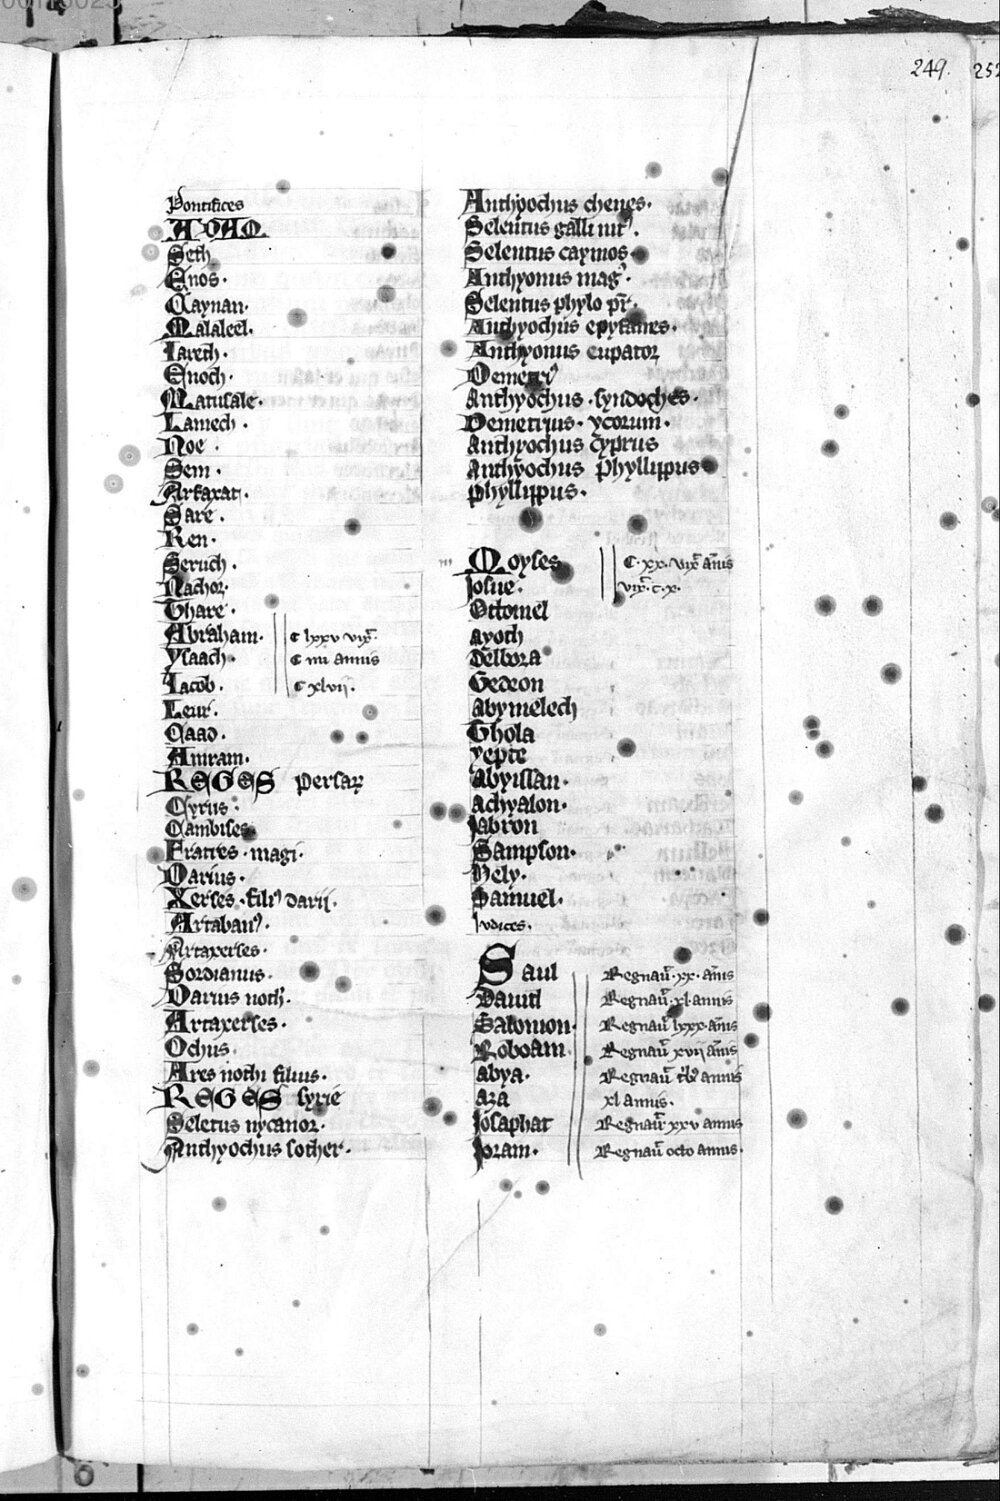 249. 252
Pontifices
ADAM
Seth
Enos.
Caynan.
Malaleel.
Iareth.
Enoch.
Matusale.
Lamech.
Noe.
Sem.
Arfaxat.
Sare.
Reu.
Seruch.
Nachor.
Thare.
Abraham. C lxxv vix̄.
Ysaach. C iiii annis
Iacob. C xlvii.
Leui.
Caad.
Amram.
REGES persaꝝ
Cyrus.
Cambises
Fratres. magi.
Darius.
Xerses. filiꝰ darii.
Artabanꝰ.
Artaxerses.
Sordianus.
Darius noth.
Artaxerses.
Ochus.
Ares nothi filius.
REGES syrie
Seletus nycanor.
Anthyochus sother.
Anthyochus cheues.
Seleutus galli nit.
Seleutus caymos.
Anthyonus magꝰ.
Seleutus phylo pr̄.
Anthyochus epyfanes.
Anthyonus eupator
Demetriꝰ
Anthyochus. syndoches.
Demetrius. ycorum.
Anthyochus cyprus
Anthyochus Phyllippus
Phyllippus.
Moyses C. xx. vix̄ an̄is
Josue. vix̄. c. x.
Ottomel
ayoth
Delbora
Gedeon
Abymelech
Thola
yepte
Abyissan.
Achyalon.
Jabron
Sampson.
Hely.
Samuel.
Iudices.
Saul Regnau̅. xx. an̄is
Dauid Regnau̅. xl. annis
Salomon. Regnau̅ lxxx. an̄is
Roboam. Regnau̅ xvii an̄is
abya. Regnau̅ annis
aza xl annis.
Josaphat Regnau̅ xxv annis
Joram. Regnau̅ octo annis.